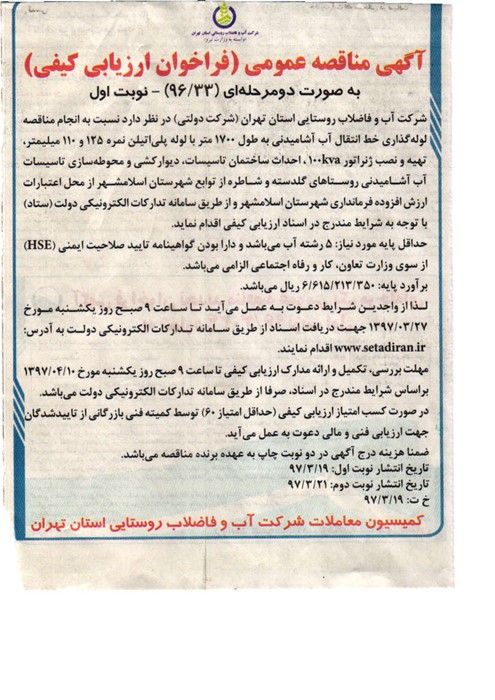 شرکت آب و فاضلاب روستایی استان تهران
وابسته به وزارت نیرو
آگهی مناقصه عمومی (فراخوان ارزیابی کیفی)
به صورت دومرحله‌ای (۹۶/۳۳) - نوبت اول
شرکت آب و فاضلاب روستایی استان تهران (شرکت دولتی) در نظر دارد نسبت به انجام مناقصه
لوله‌گذاری خط انتقال آب آشامیدنی به طول ۱۷۰۰ متر با لوله پلی‌اتیلن نمره ۱۲۵ و ۱۱۰ میلیمتر،
تهیه و نصب ژنراتور ۱۰۰kva، احداث ساختمان تاسیسات، دیوارکشی و محوطه‌سازی تاسیسات
آب آشامیدنی روستاهای گلدسته و شاطره از توابع شهرستان اسلامشهر از محل اعتبارات
ارزش افزوده فرمانداری شهرستان اسلامشهر و از طریق سامانه تدارکات الکترونیکی دولت (ستاد)
با توجه به شرایط مندرج در اسناد ارزیابی کیفی اقدام نماید.
حداقل پایه مورد نیاز: ۵ رشته آب می‌باشد و دارا بودن گواهینامه تایید صلاحیت ایمنی (HSE)
از سوی وزارت تعاون، کار و رفاه اجتماعی الزامی می‌باشد.
برآورد پایه: ۶/۶۱۵/۲۱۳/۳۵۰ ریال می‌باشد.
لذا از واجدین شرایط دعوت به عمل می‌آید تا ساعت ۹ صبح روز یکشنبه مورخ
۱۳۹۷/۰۳/۲۷ جهت دریافت اسناد از طریق سامانه تدارکات الکترونیکی دولت به آدرس:
www.setadiran.ir اقدام نمایند.
مهلت بررسی، تکمیل و ارائه مدارک ارزیابی کیفی تا ساعت ۹ صبح روز یکشنبه مورخ ۱۳۹۷/۰۴/۱۰
براساس شرایط مندرج در اسناد، صرفا از طریق سامانه تدارکات الکترونیکی دولت می‌باشد.
در صورت کسب امتیاز ارزیابی کیفی (حداقل امتیاز ۶۰) توسط کمیته فنی بازرگانی از تاییدشدگان
جهت ارزیابی فنی و مالی دعوت به عمل می‌آید.
ضمنا هزینه درج آگهی در دو نوبت چاپ به عهده برنده مناقصه می‌باشد.
تاریخ انتشار نوبت اول: ۹۷/۳/۱۹
تاریخ انتشار نوبت دوم: ۹۷/۳/۲۱
خ ت: ۹۷/۳/۱۹
کمیسیون معاملات شرکت آب و فاضلاب روستایی استان تهران